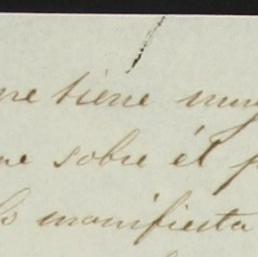 tiene muy
sobre él
manifiesta